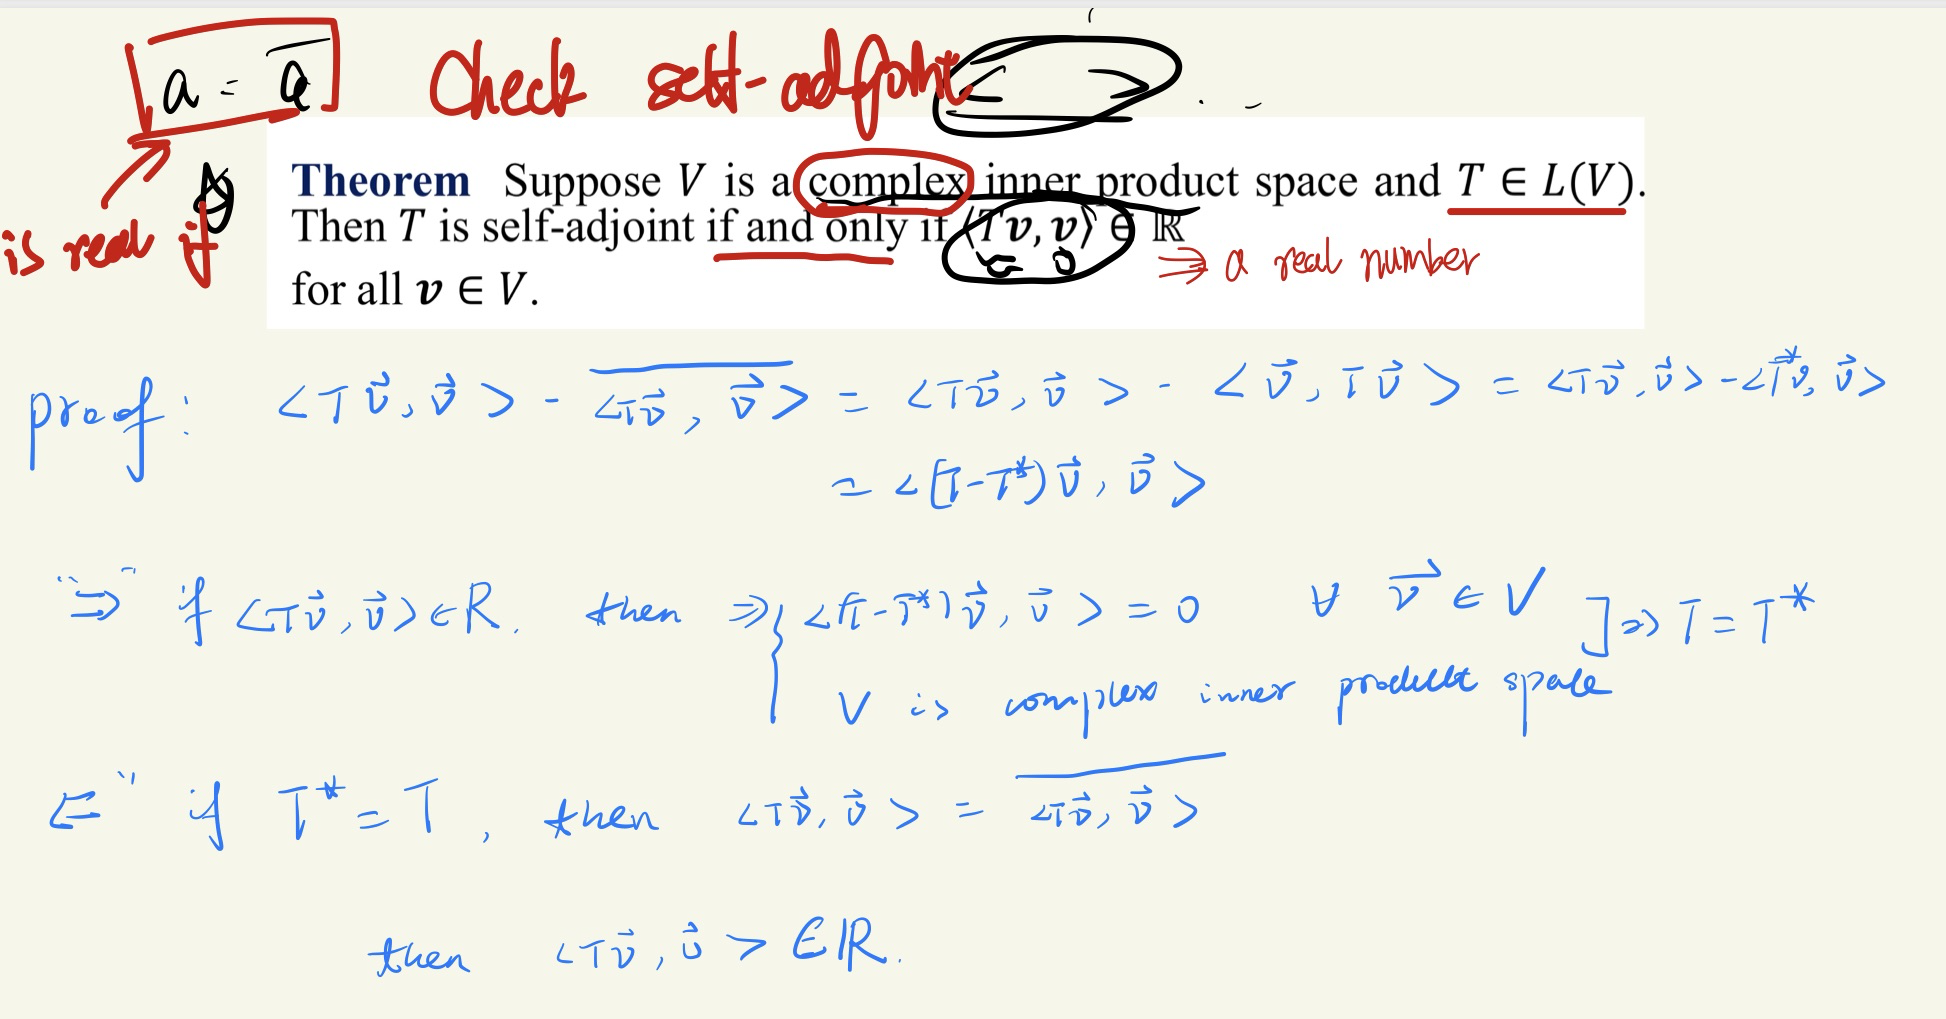 a = a̅ Check self-adjoint < >
is real if
Theorem Suppose V is a complex inner product space and T ∈ L(V).
Then T is self-adjoint if and only if ⟨Tv, v⟩ ∈ ℝ
⇒ a real number
for all v ∈ V.
proof: <Tv⃗, v⃗> - \overline{<Tv⃗, v⃗>} = <Tv⃗, v⃗> - <v⃗, Tv⃗> = <Tv⃗, v⃗> - <T*v⃗, v⃗>
= <(T-T*)v⃗, v⃗>
"⇒" if <Tv⃗, v⃗> ∈ R. then ⇒ { <(T-T*)v⃗, v⃗> = 0 ∀ v⃗ ∈ V ] ⇒ T = T*
V is complex inner product space
⇐" if T* = T, then <Tv⃗, v⃗> = \overline{<Tv⃗, v⃗>}
then <Tv⃗, v⃗> ∈ ℝ.